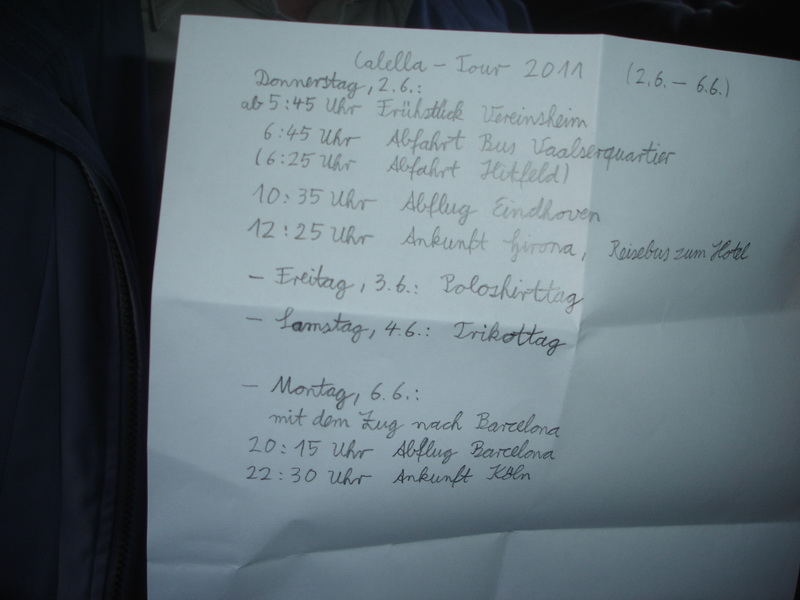 Calella - Tour 2011 (2.6. - 6.6.)
Donnerstag, 2.6.:
ab 5:45 Uhr Frühstück Vereinsheim
6:45 Uhr Abfahrt Bus Vaalserquartier
(6:25 Uhr Abfahrt Hitfeld)
10:35 Uhr Abflug Eindhoven
12:25 Uhr Ankunft Girona, Reisebus zum Hotel
- Freitag, 3.6.: Poloshirttag
- Samstag, 4.6.: Trikottag
- Montag, 6.6.:
mit dem Zug nach Barcelona
20:15 Uhr Abflug Barcelona
22:30 Uhr Ankunft Köln